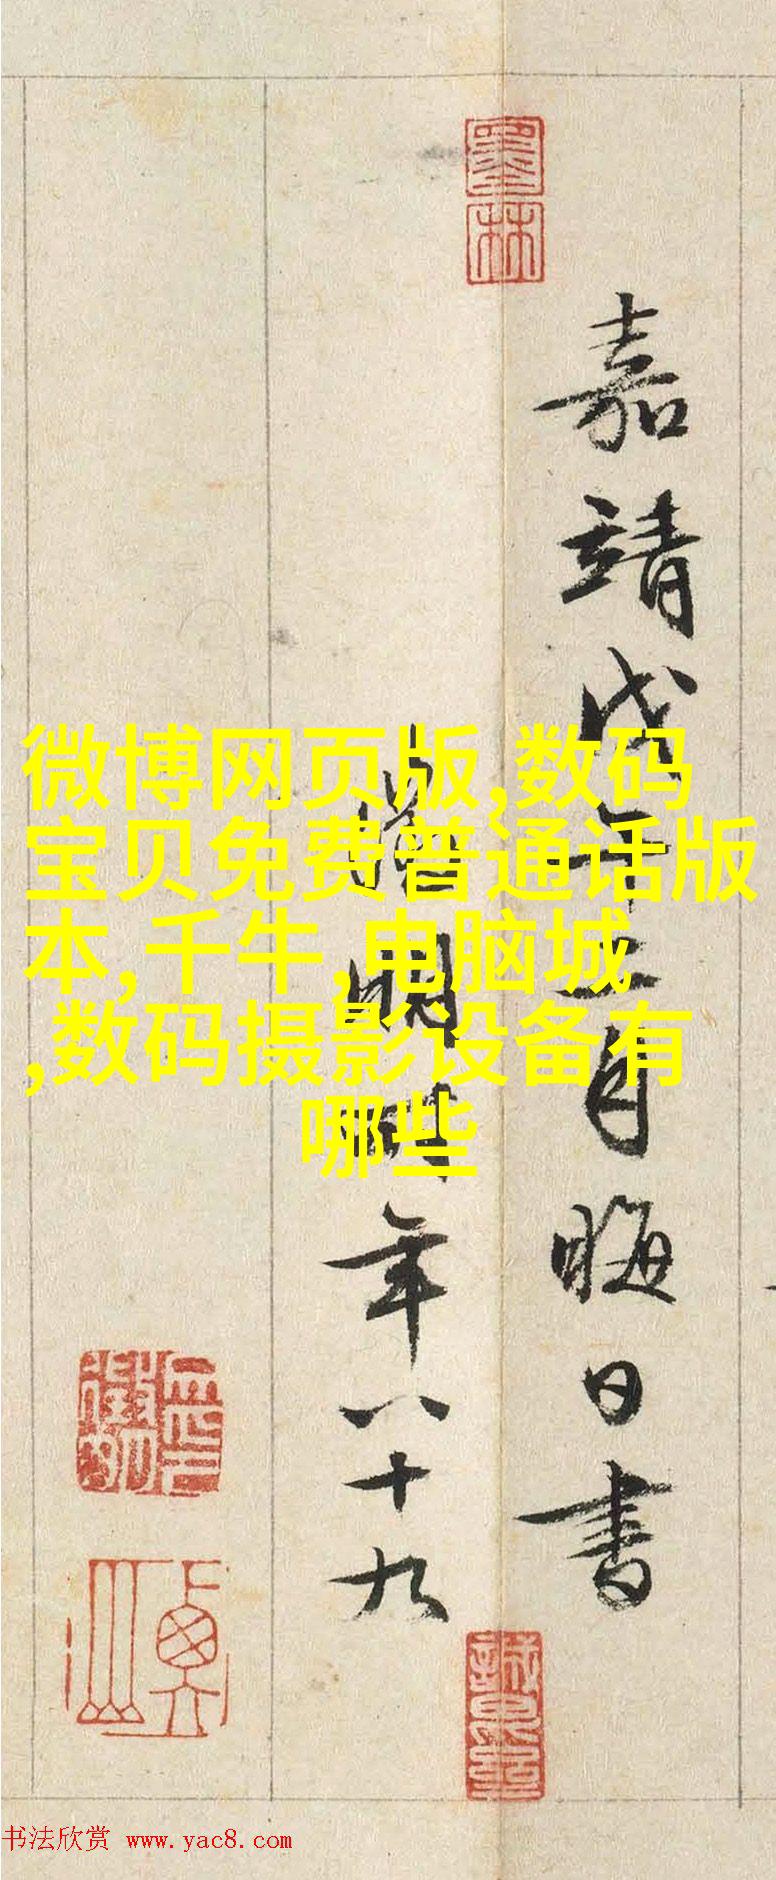 墨林
嘉靖戊午月晦日書
徵明時年八十九
微博网页版,数码
宝贝免费普通话版
本,千牛 ,电脑城
,数码摄影设备有
哪些
书法欣赏 www.yac8.com